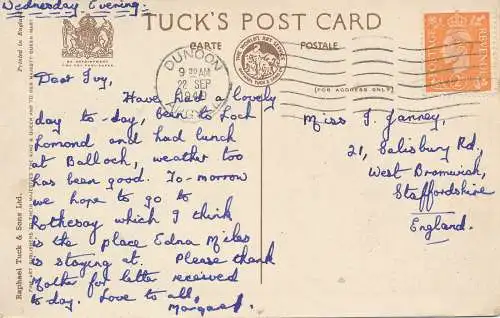 Wednesday Evening:
TUCK'S POST CARD
CARTE POSTALE
(FOR ADDRESS ONLY)
DUNOON
9 AM
22 SEP
POSTAGE
REVENUE
Dear Ivy,
Have had a lovely
day to-day, been to Loch
Lomond and had lunch
at Balloch, weather too
has been good. To-morrow
we hope to go to
Rothesay which I think
is the place Edna Miles
is staying at. Please thank
Mother for letter received
to-day. Love to all,
Margaret
Miss I. Janney,
21, Salisbury Rd.,
West Bromwich,
Staffordshire
England.
Raphael Tuck & Sons Ltd.
Printed in England
BY APPOINTMENT